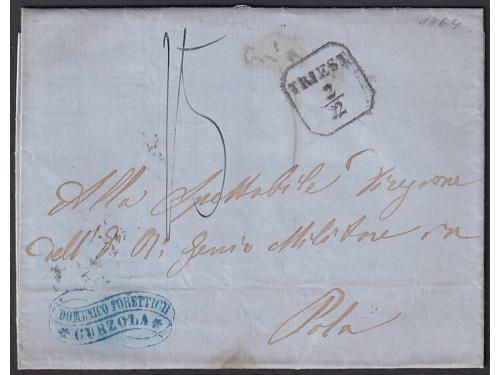 1864.
15
TRIEST
2/2
Alla Spettabile Direzione
dell' I. R. Genio Militare in
Pola
DOMENICO FORETTICH
* CURZOLA *